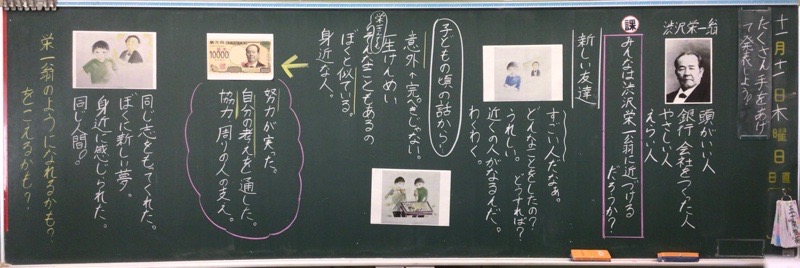 十一月十一日木曜日
日直
たくさん手をあげ
て発表しよう!
渋沢栄一翁
頭がいい人
銀行 会社をつくった人
やさしい人
えらい人
課
みんなは渋沢栄一翁に近づける
だろうか?
新しい友達
すごい人だなあ。
どんなことをしたの?
うれしい。どうすれば?
近くの人がなるんだ。
わくわく。
子どもの頃の話から!
意外↑完ぺきじゃない。
一生けんめい
あるの
ぼくと似ている。
身近な人。
10000
努力が実った。
自分の考えを通した。
協力 周りの人の支え。
同じ志をもてくれた。
ぼくに新しい夢。
身近に感じられた。
同じ人間。
栄一翁のようになれるかも?
をこえるかも?